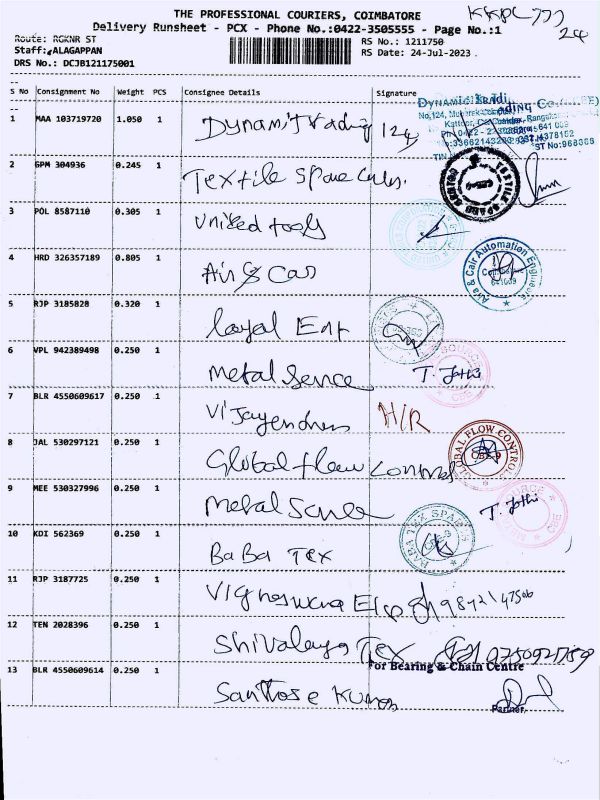 THE PROFESSIONAL COURIERS, COIMBATORE
Delivery Runsheet - PCX - Phone No.:0422-3505555 - Page No.:1
24
Route: RGKNR ST
RS No.: 1211750
Staff: ALAGAPPAN
RS Date: 24-Jul-2023
DRS No.: DCJB121175001
S No Consignment No Weight PCS Consignee Details Signature
1 MAA 103719720 1.050 1
2 GPM 304936 0.245 1 Textile Spare
3 POL 8587110 0.305 1 United tools
4 HRD 326357189 0.805 1 Air & Car
Aira & Cair Automation Engineers
5 RJP 3185828 0.320 1 Loyal Ent
6 VPL 942389498 0.250 1 Metal T. Jothi
7 BLR 4550609617 0.250 1 Vijayendren H/R
8 JAL 530297121 0.250 1 Global flow Control
GLOBAL FLOW CONTROLS
9 MEE 530327996 0.250 1 Metal T. Jothi
10 KDI 562369 0.250 1 BaBa Tex
BABA TEX SPARES
11 RJP 3187725 0.250 1 Vigneswara
12 TEN 2028396 0.250 1 Shivalaya Tex
For Bearing & Chain Centre
13 BLR 4550609614 0.250 1 Santhose Kumar
Partner